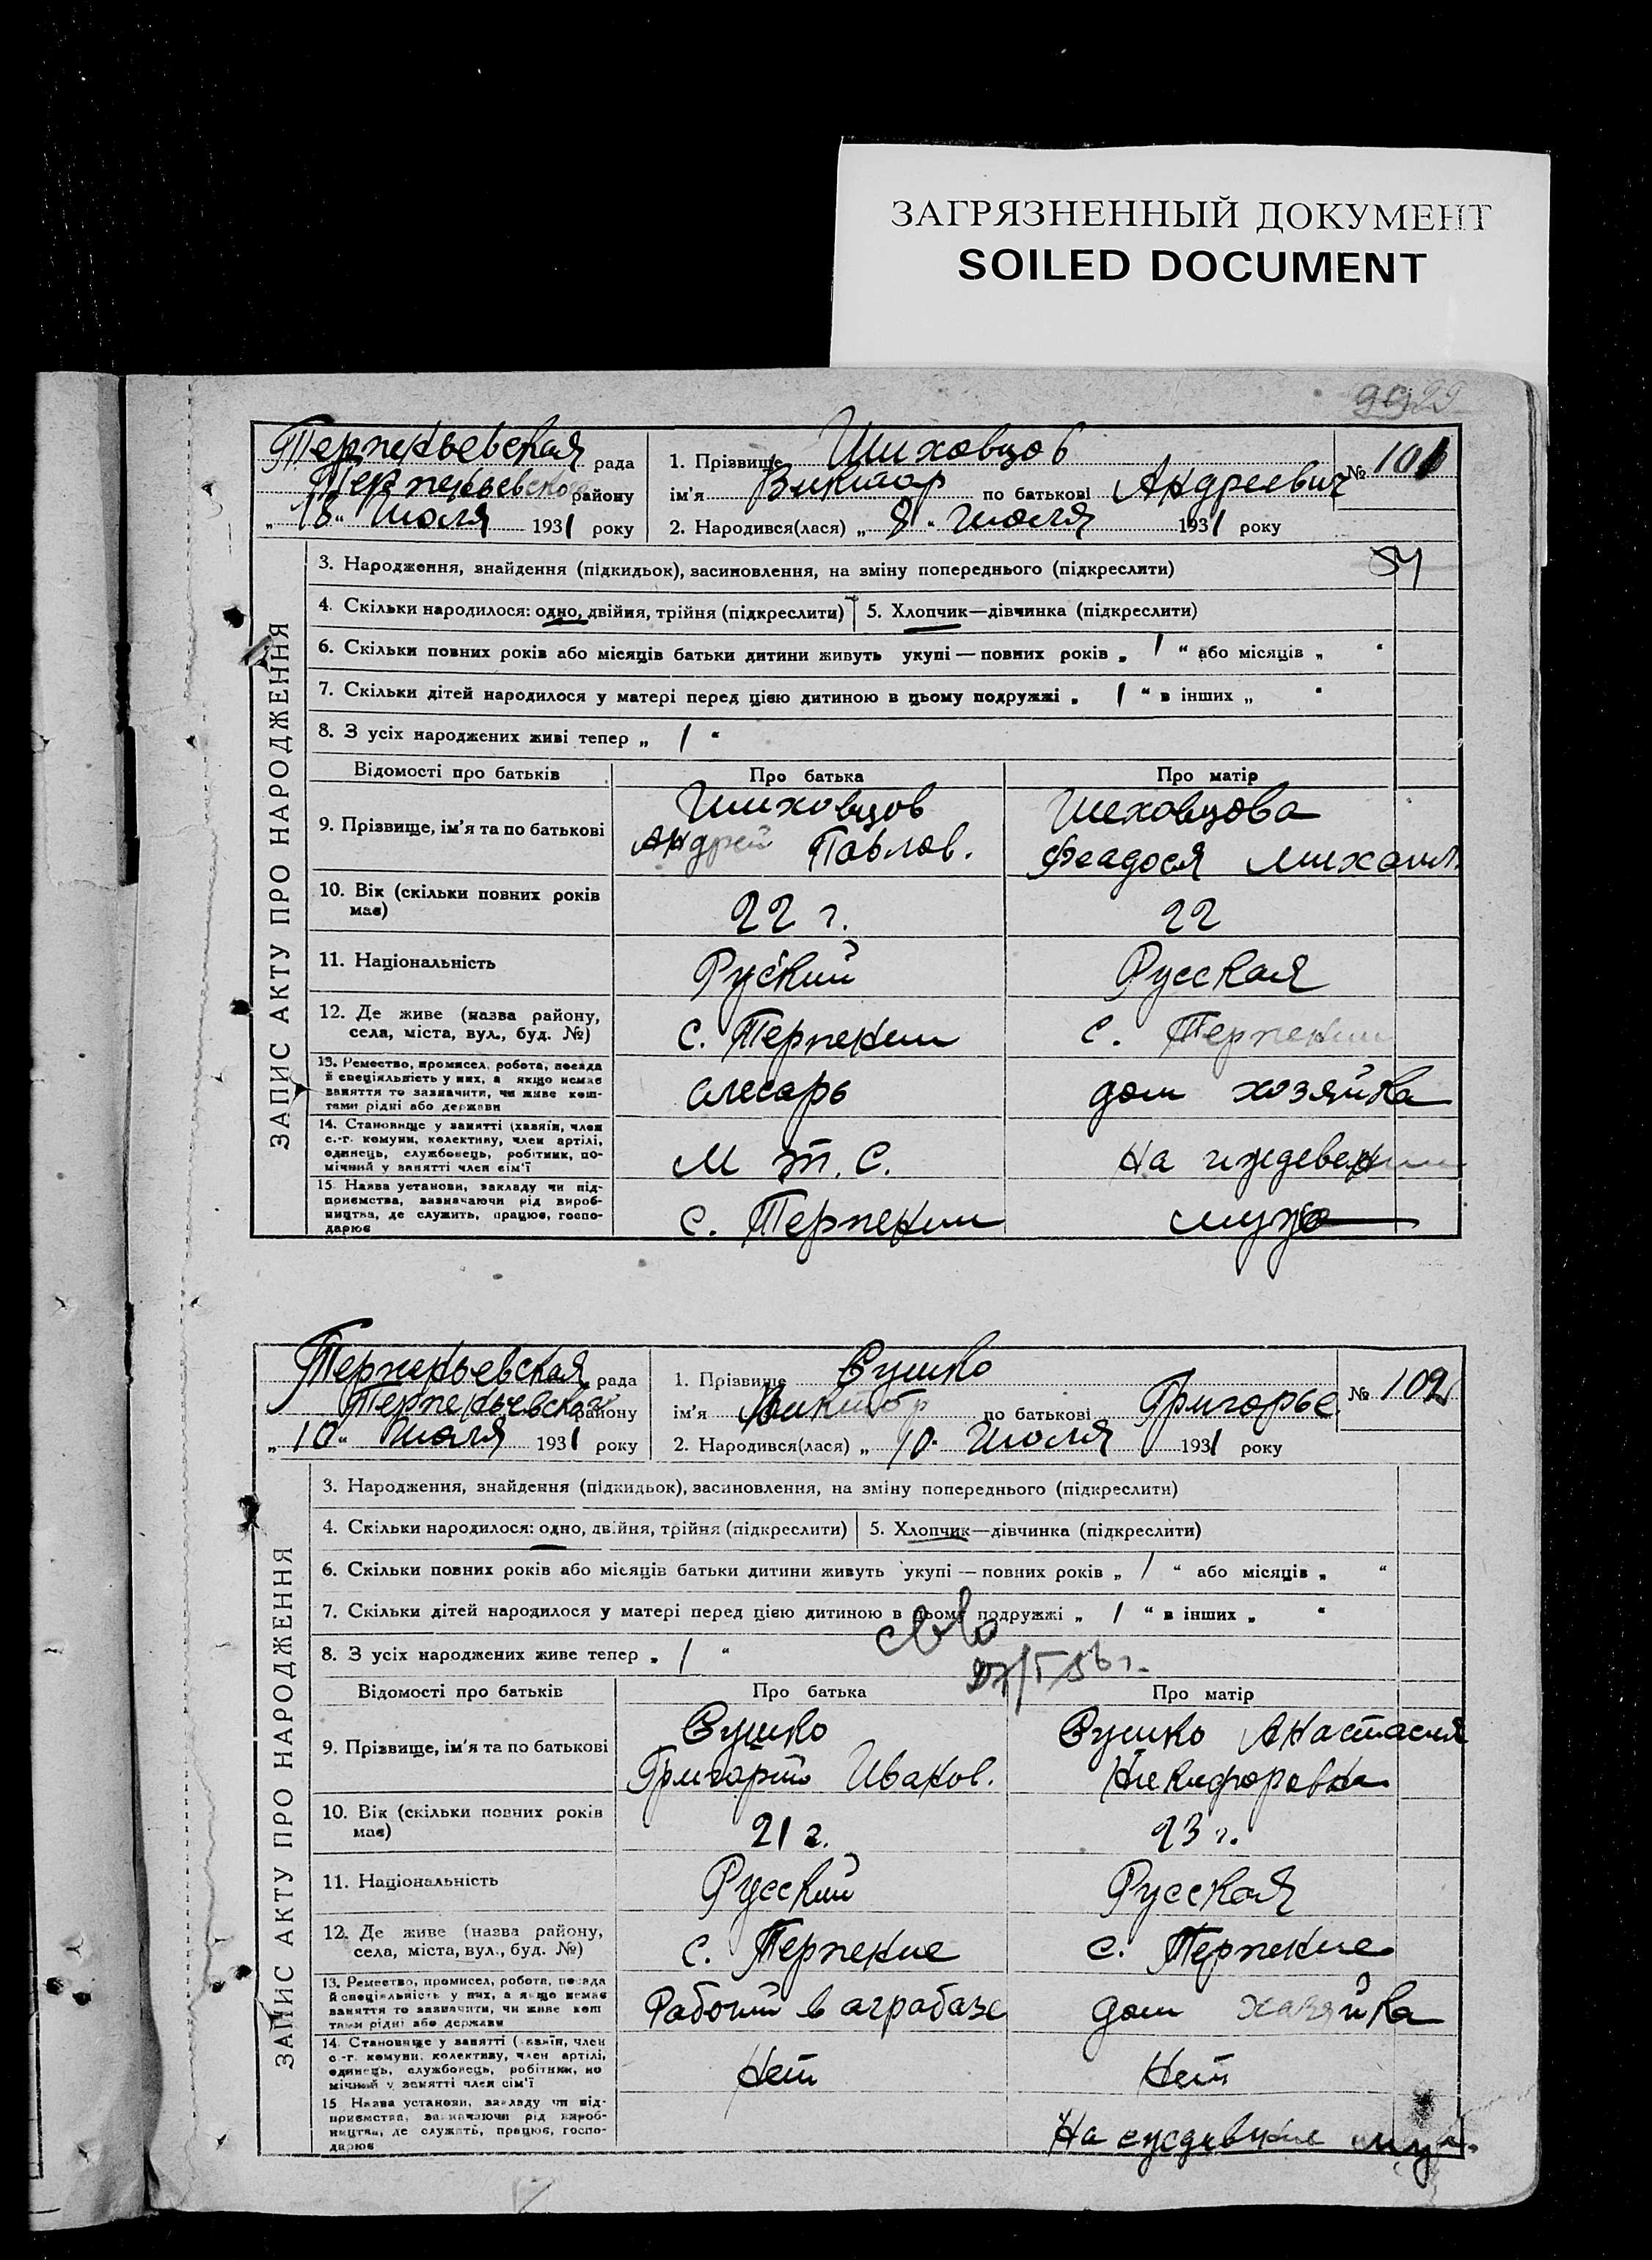 ЗАГРЯЗНЕННЫЙ ДОКУМЕНТ
SOILED DOCUMENT
99 29
Терпеньевская рада
Терпеньевского району
„18“ Июля 1931 року
1. Прізвище Шиховцов
ім'я Виктор по батькові Андреевич
№ 101
2. Народився(лася) „8“ Июля 1931 року
ЗАПИС АКТУ ПРО НАРОДЖЕННЯ
3. Народження, знайдення (підкидьок), засиновлення, на зміну попереднього (підкреслити)
4. Скільки народилося: одно, двійня, трійня (підкреслити) 5. Хлопчик—дівчинка (підкреслити)
6. Скільки повних років або місяців батьки дитини живуть укупі — повних років „ 1 “ або місяців „ “
7. Скільки дітей народилося у матері перед цією дитиною в цьому подружжі „ 1 “ в інших „ “
8. З усіх народжених живі тепер „ 1 “
Відомості про батьків Про батька Про матір
9. Прізвище, ім'я та по батькові
Шиховцов
Андрей Павлов.
Шеховцова
Феадося Михаил.
10. Вік (скільки повних років має)
22 г. 22
11. Національність Руский Русская
12. Де живе (назва району,
села, міста, вул., буд. №)
с. Терпении с. Терпении
13. Ремество, промисел, робота, посада
й спеціяльність у них, а якщо немає
заняття то зазначити, чи живе кош-
тами рідні або держави
слесарь дом хозяйка
14. Становище у занятті (хазяїн, член
с.-г. комуни, колективу, член артілі,
одинець, службовець, робітник, по-
мічний у занятті член сім'ї
М т. С. на иждевении
15 Назва установи, закладу чи під-
приємства, зазначаючи рід вироб-
ництва, де служить, працює, госпо-
дарює
с. Терпении мужа
Терпеньевская рада
Терпеньевского району
„10“ Июля 1931 року
1. Прізвище Сушко
ім'я Виктор по батькові Григорье.
№ 102
2. Народився(лася) „10“ Июля 1931 року
ЗАПИС АКТУ ПРО НАРОДЖЕННЯ
3. Народження, знайдення (підкидьок), засиновлення, на зміну попереднього (підкреслити)
4. Скільки народилося: одно, двійня, трійня (підкреслити) 5. Хлопчик—дівчинка (підкреслити)
6. Скільки повних років або місяців батьки дитини живуть укупі — повних років „ 1 “ або місяців „ “
7. Скільки дітей народилося у матері перед цією дитиною в цьому подружжі „ 1 “ в інших „ “
8. З усіх народжених живе тепер „ 1 “
с-во
27/I 56 г.
Відомості про батьків Про батька Про матір
9. Прізвище, ім'я та по батькові
Сушко
Григорий Иванов.
Сушко Анастасия
Никифоровна
10. Вік (скільки повних років має)
21 г. 23 г.
11. Національність Русский Русская
12. Де живе (назва району,
села, міста, вул., буд. №)
с. Терпение с. Терпение
13. Ремество, промисел, робота, посада
й спеціяльність у них, а якщо немає
заняття то зазначити, чи живе кош
тами рідні або держави
Рабочий в аграбазе дом хазяйка
14. Становище у занятті (хазяїн, член
с.-г. комуни, колективу, член артілі,
одинець, службовець, робітник, по
мічний у занятті член сім'ї
Нет Нет
15 Назва установи, закладу чи під-
приємства, зазначаючи рід вироб-
ництва, де служить, працює, госпо-
дарює
На